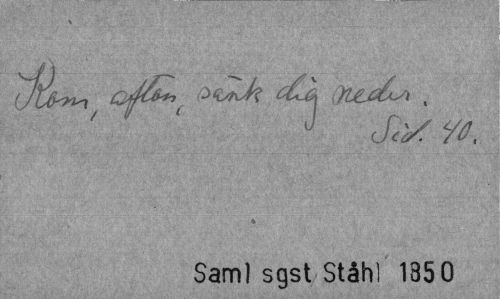 Kom, afton, sänk dig neder.
Sid. 40.
Saml sgst Ståhl 1850